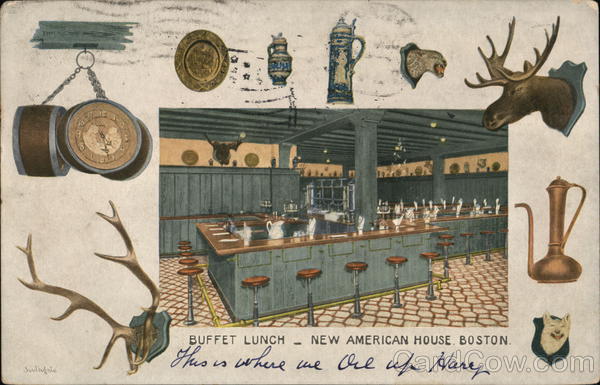 BUFFET LUNCH — NEW AMERICAN HOUSE, BOSTON.
This is where we Oil up Harry
CardCow.com